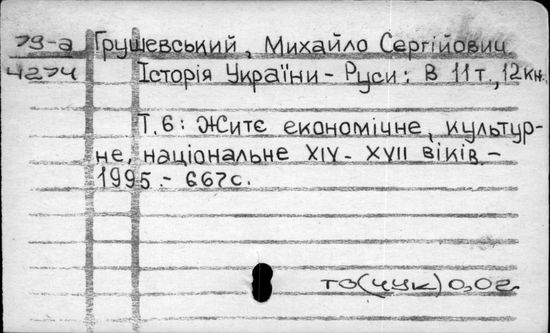 79-а Грушевський, Михайло Сергійович
4274 Історія України-Руси: В 11 т., 12 кн.
Т. 6: Житє економічне, культур-
не, національне XIV-XVII віків.-
1995.- 667с.
то(уук)0,02.